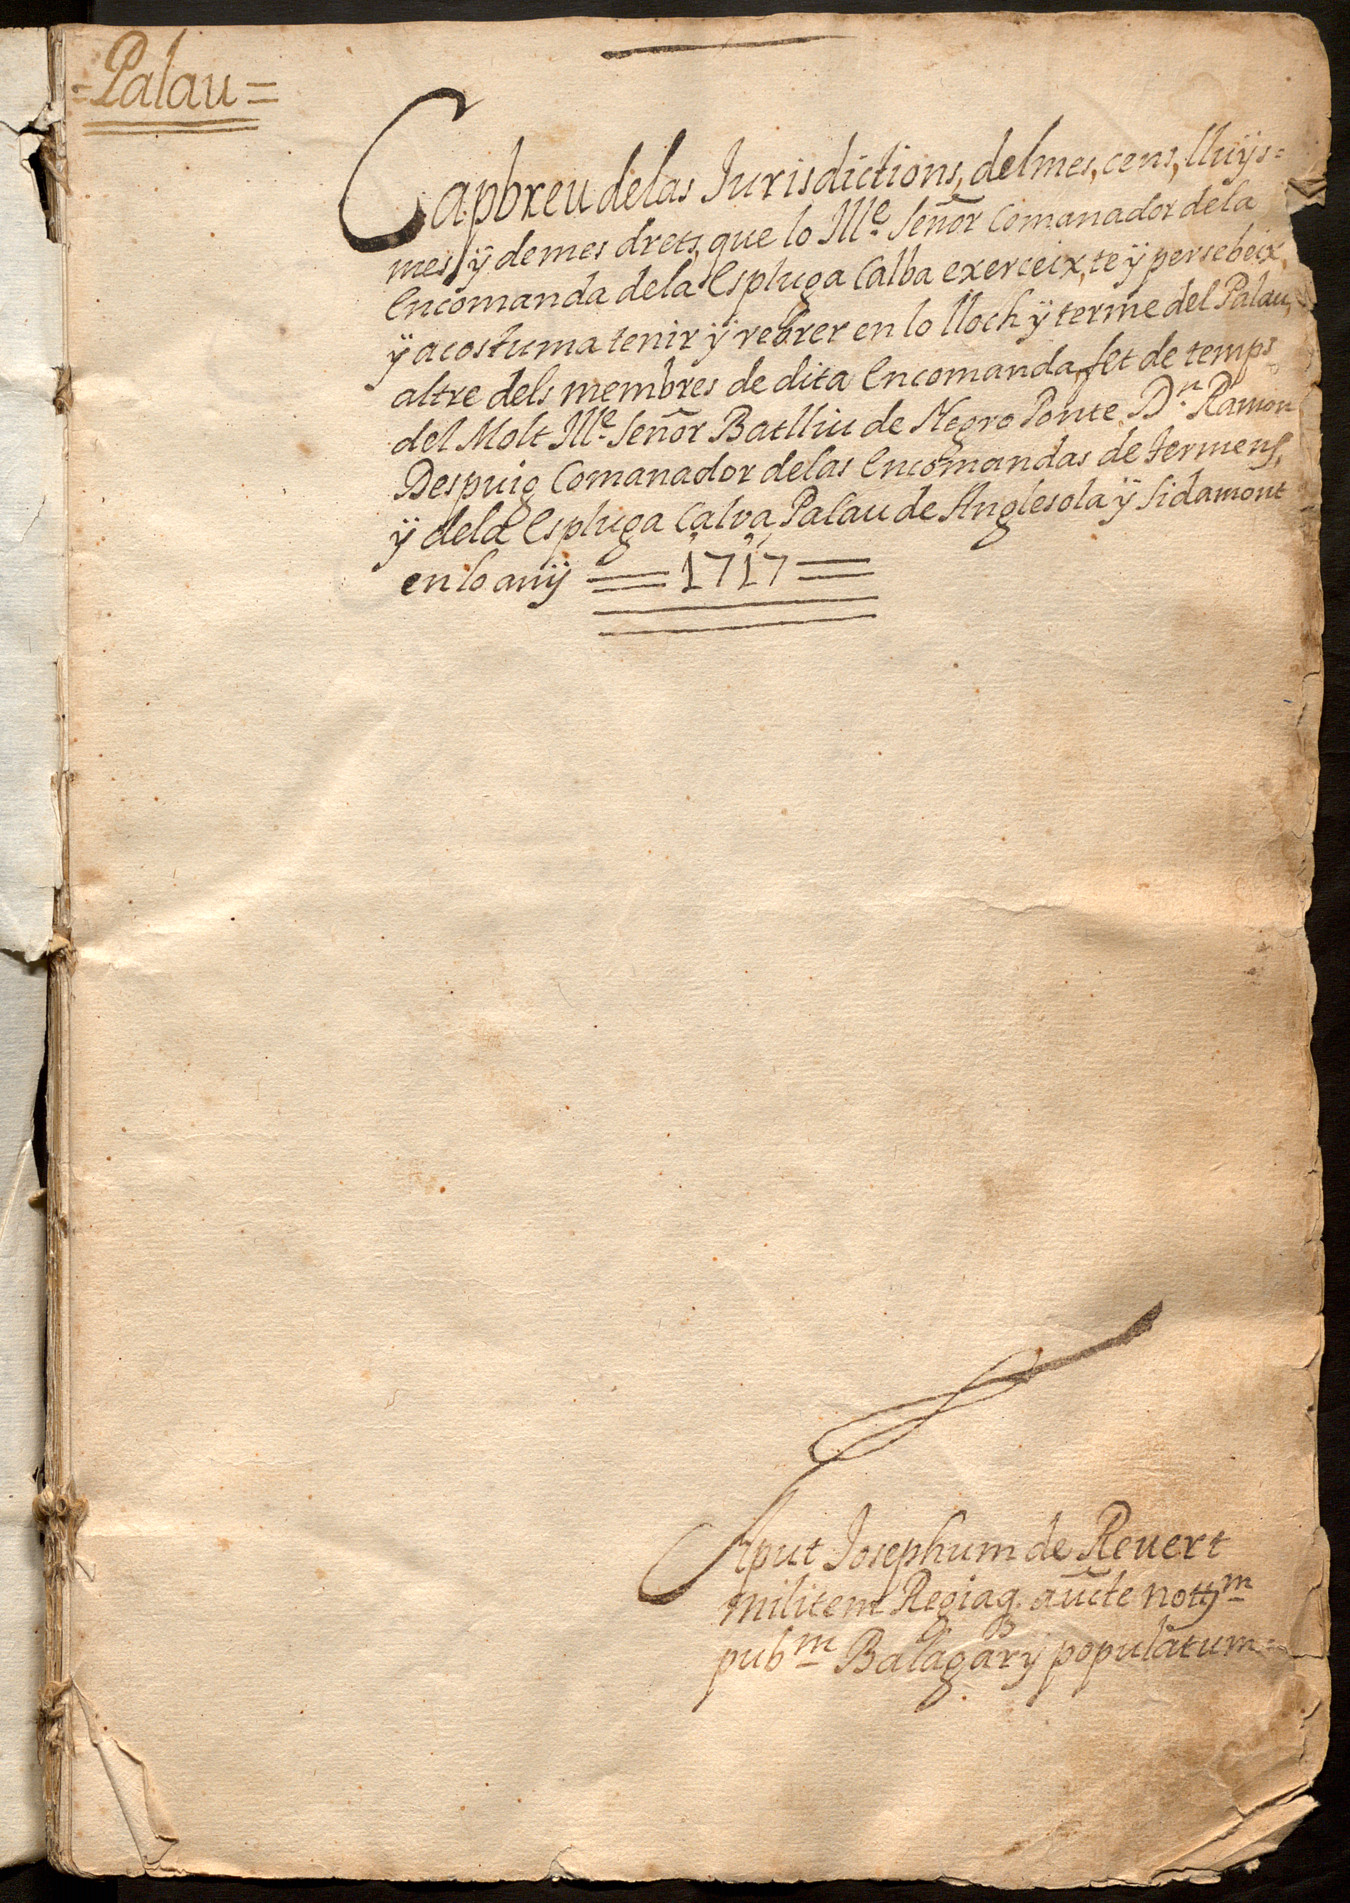 =Palau=
Capbreu de las Jurisdictions, delmes, cens, lluÿs=
mes, ÿ demes drets, que lo Ille. Señor Comanador de la
Encomanda de la Espluga Calba exerceix, te ÿ persebeix,
ÿ acostuma tenir ÿ rebrer en lo lloch ÿ terme del Palau,
altre dels membres de dita Encomanda, fet de temps
del Molt Ille. Señor Batlliu de Negro Ponte Dn. Ramon
Despuig Comanador de las Encomandas de termens,
ÿ dela Espluga Calva, Palau de Anglesola ÿ Sidamont
en lo anÿ == 1717 ==
Aput Josephum de Revert
militem Regiaq. aucte nottm
pubm Balagarÿ populatum=